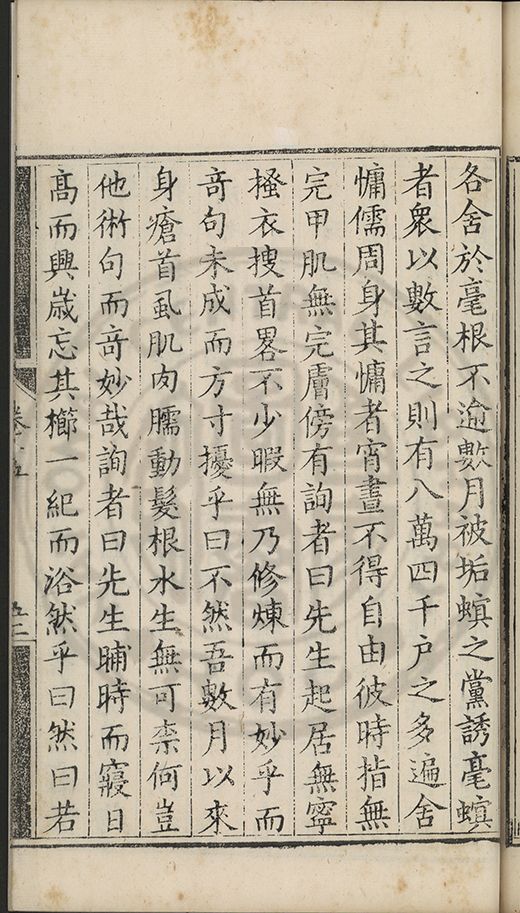 各舍於毫根不逾數月被垢螾之黨誘毫螾
者衆以數言之則有八萬四千户之多遍舍
慵儒周身其慵者宵晝不得自由彼時指無
完甲肌無完膚傍有詢者曰先生起居無寧
搔衣捜首畧不少暇無乃修煉而有妙乎而
竒句未成而方寸擾乎曰不然吾數月以來
身瘡首虱肌肉臑動髮根水生無可柰何豈
他術句而竒妙哉詢者曰先生晡時而寢日
髙而興歳忘其櫛一紀而浴然乎曰然曰若
卷十五